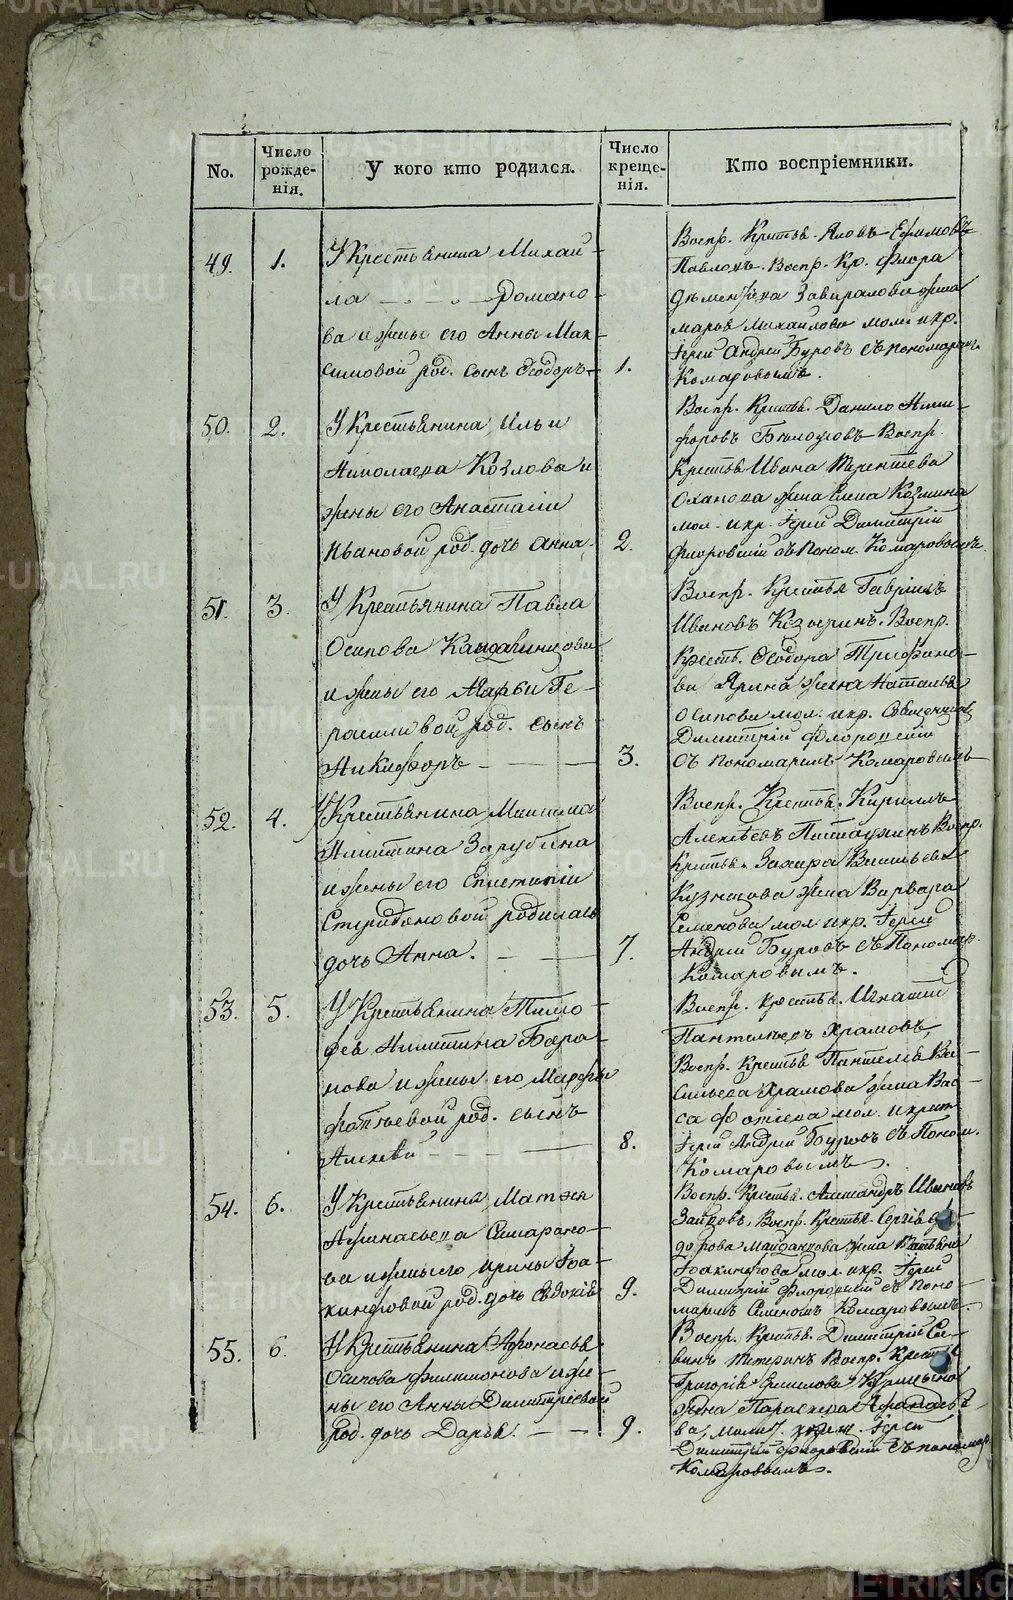 No.
Число рожде-нія.
У кого кто родился.
Число креще-нія.
Кто воспріемники.
49. 1.
У Крестьянина Михаи-
ла Романо-
ва и жены его Анны Мак-
симовой род. сынъ Ѳеодоръ
1.
Воспр. Крестья. Яковъ Ефимовъ
Воспр. Кр. Флора
Дементьева жена
Марья Михайлова мол. и кр.
Іерей Андрей Буровъ съ пономаремъ
Комаровымъ.
50. 2.
У Крестьянина Ильи
Николаева Козлова и
жены его Анастасіи
Ивановой род. дочь Анна.
2.
Воспр. Крестья. Данило Ники-
форовъ Бѣлоусовъ Воспр.
Крестья Ивана Терентьева
жена Козмина
мол. и кр. Іерей Димитрій
Флоровскій съ Поном. Комаровымъ.
51. 3.
У Крестьянина Павла
Осипова
и жены его Марьи Ге-
расимовой род. сынъ
Никифоръ
3.
Воспр. Крестья Гавріилъ
Ивановъ Воспр.
Кресть. Ѳеодора Трифоно-
ва жена Наталья
Осипова мол. и кр. Священникъ
Димитрій Флоровскій
съ пономаремъ Комаровымъ
52. 4.
У Крестьянина Максима
Никитина Зарубина
и жены его
Спиридоновой родилась
дочь Анна.
7.
Воспр. Крестья. Кириллъ
Алексѣевъ Воспр.
Крестья. Захара Васильева
Кузнецова жена Варвара
Семенова мол. и кр. Іерей
Андрей Буровъ съ Пономар.
Комаровымъ.
53. 5.
У Крестьянина Тимо-
фея Никитина Бара-
нова и жены его Марфы
Фотіевой род. сынъ
Алексѣй
8.
Воспр. Крестья. Игнатій
Пантелеевъ Храмовъ,
Воспр. Крестья Пантелея Ва-
сильева Храмова жена Вас-
са Фотіева мол. и крест.
Іерей Андрей Буровъ съ Поном.
Комаровымъ.
54. 6.
У Крестьянина Матвея
Афанасьева
ва и жены его Ирины Іоа-
кинфовой род. дочь Евдокія
9.
Воспр. Крестья. Александръ Ивановъ
Зайковъ, Воспр. Крестья. Сергія
дорова Майданкова жена Татьяна
Іоакинфова мол. и кр. Іерей
Димитрій Флоровскій съ поно-
маремъ Семеномъ Комаровымъ.
55. 6.
У Крестьянина Афонасья
Осипова Филимонова и же-
ны его Анны Димитріевой
род. дочь Дарья.
9.
Воспр. Крестья. Димитрій Са-
винъ Тетеринъ Воспр. Крестья
Григорія
жена Параскева Афанасье-
ва, мол. и крест. Іерей
Димитрій Флоровскій съ пономар.
Комаровымъ.
METRIKI.GASO-URAL.RU